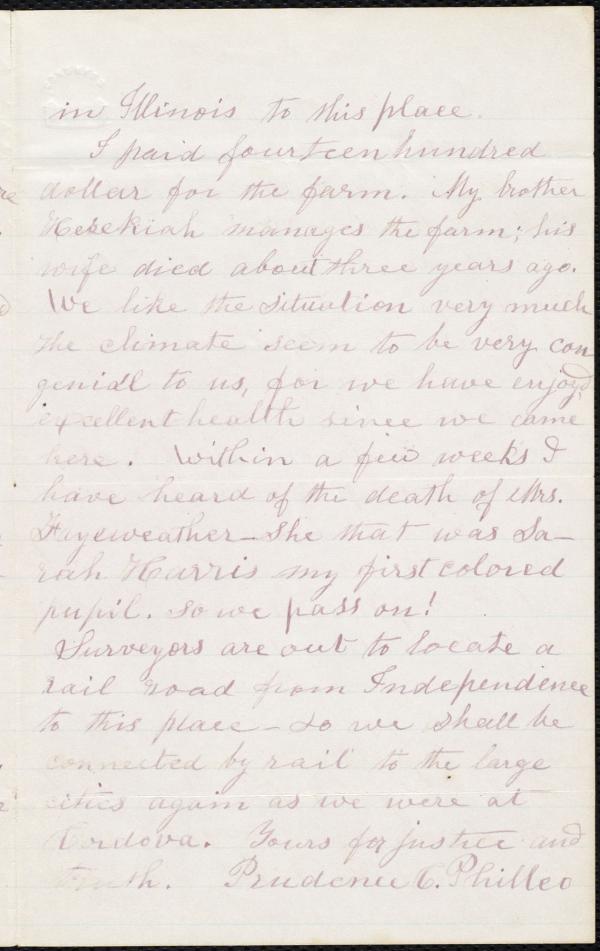 in Illinois to this place.
I paid fourteen hundred
dollar for the farm. My brother
Hezekiah manages the farm; his
wife died about three years ago.
We like the situation very much
the climate seem to be very con
genial to us, for we have enjoyd
excellent health since we came
here. Within a few weeks I
have heard of the death of Mrs.
Fayeweather_ She that was Sa_
rah Harris my first colored
pupil. So we pass on!
Surveyors are out to locate a
rail road from Independence
to this place_ so we shall be
connected by rail to the large
cities again as we were at
Cordova. Yours for justice and
truth. Prudence C. Philleo